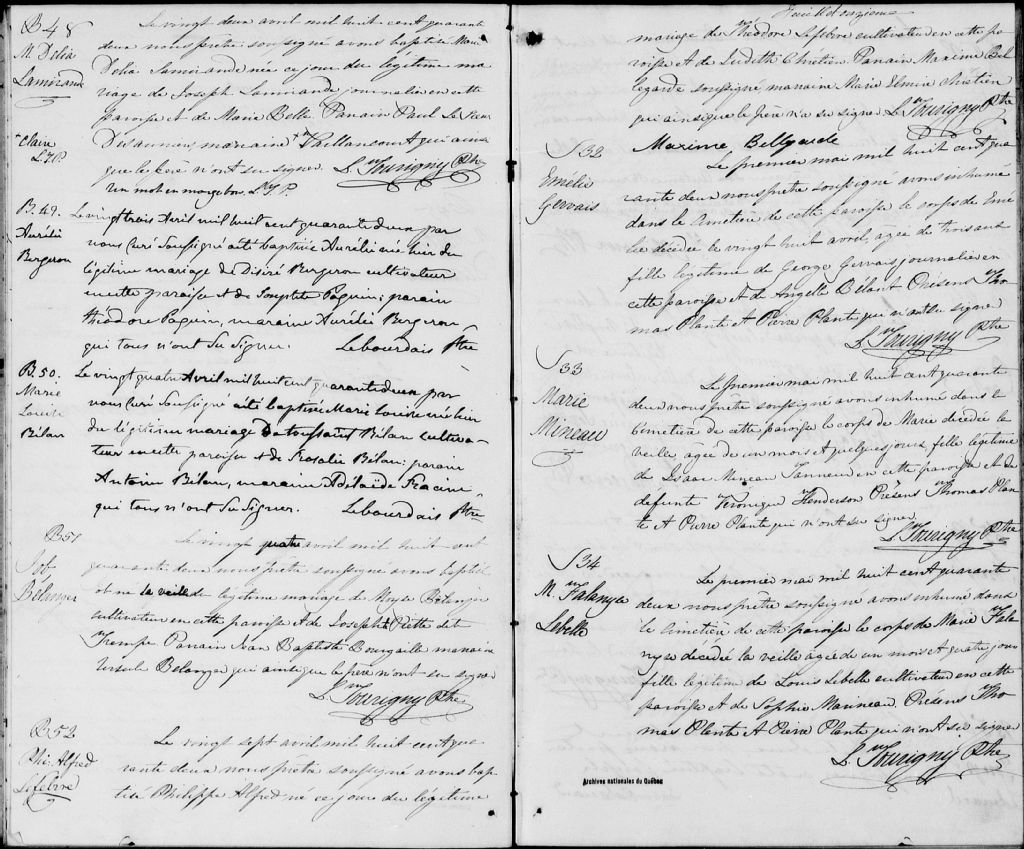 B48
M. Delia
Lamirand
Le vingt deux avril mil huit cent quarante
deux nous prêtre soussigné avons baptisé Marie
Delia Lamirande née ce jour du légitime ma
riage de Joseph Lamirande journalier en cette
paroisse et de Marie Belle Parrain Paul Le Sieur
Desauniers marraine + Vaillancourt qui ainsi
que le père n'ont su signer. L. Tourigny Ptre
Un mot en marge bon L.T.P.
+ Claire
L.T.P.
B.49.
Aurélie
Bergeron
Le vingt trois Avril mil huit cent quarante deux par
nous Curé Soussigné a été baptisée Aurélie née hier du
légitime mariage de Désiré Bergeron cultivateur
en cette paroisse et de Josephte Paquin; parain
théodore Paquin, maraine Aurélie Bergeron
qui tous n'ont Su Signer. Lebourdais Ptre
B.50.
Marie
Louise
Bilau
Le vingt quatre Avril mil huit cent quarante deux par
nous Curé Soussigné a été baptisée Marie Louise née hier
du légitime mariage De toussaint Bilau cultiva-
teur en cette paroisse et de Rosalie Bélan: parain
Antoine Bilau, maraine Adélaïde Fracine
qui tous n'ont Su Signer. Lebourdais Ptre
B51
Job
Bélanger
Le vingt quatre avril mil huit cent
quarante deux nous prêtre soussigné avons baptisé
né la veille de légitime mariage de Moyse Bélanger
cultivateur en cette paroisse et de Josephte Piette dit
Trempe Parrain Jean Baptiste Bourgaille marraine
Ursule Belanger qui ainsi que le père n'ont su signer
L. Tourigny Ptre
B52
Phi. Alfred
Lefebvre
Le vingt sept avril mil huit cent qua
rante deux nous prêtre soussigné avons bap
tisé Philippe Alfred né ce jour du légitime
Feuillet onzieme
mariage de Théodore Lefebvre cultivateur en cette pa
roisse et de Judith Chrétien Parrain Maxime Bel
legarde soussigné, marraine Marie Elmire Chrétien
qui ainsi que le père n'a su signer L. Tourigny Ptre
Maxime, Bellgarde
S32
Emélie
Gervais
Le premier mai mil huit cent qua
rante deux nous prêtre soussigné avons inhumé
dans le cimetière de cette paroisse le corps de Emé
lie décédée le vingt huit avril, agée de trois ans
fille légitime de George Gervais journalier en
cette paroisse et de Angelle Bélant Présens Tho
mas Plante et Pierre Plante qui n'ont su signer
L. Tourigny Ptre
S33
Marie
Mineau
Le premier mai mil huit cent quarante
deux nous prêtre soussigné avons inhumé dans le
cimetière de cette paroisse le corps de Marie décédée la
veille, agée de un mois et quelques jours, fille légitime
de Isaac Mineau Tanneur en cette paroisse et de
defunte Véronique Henderson Présens Thomas Plan
te et Pierre Plante qui n'ont su signer
L. Tourigny Ptre
S34
M. Falanyse
Lebelle
Le premier mai mil huit cent quarante
deux nous prêtre soussigné avons inhumé dans
le cimetière de cette paroisse le corps de Marie Fala
nyse décédée la veille agée de un mois et quatre jours
fille légitime de Louis Lebelle cultivateur en cette
paroisse et de Sophie Marineau Présens Tho
mas Plante et Pierre Plante qui n'ont su signer
L. Tourigny Ptre
Archives nationales du Québec